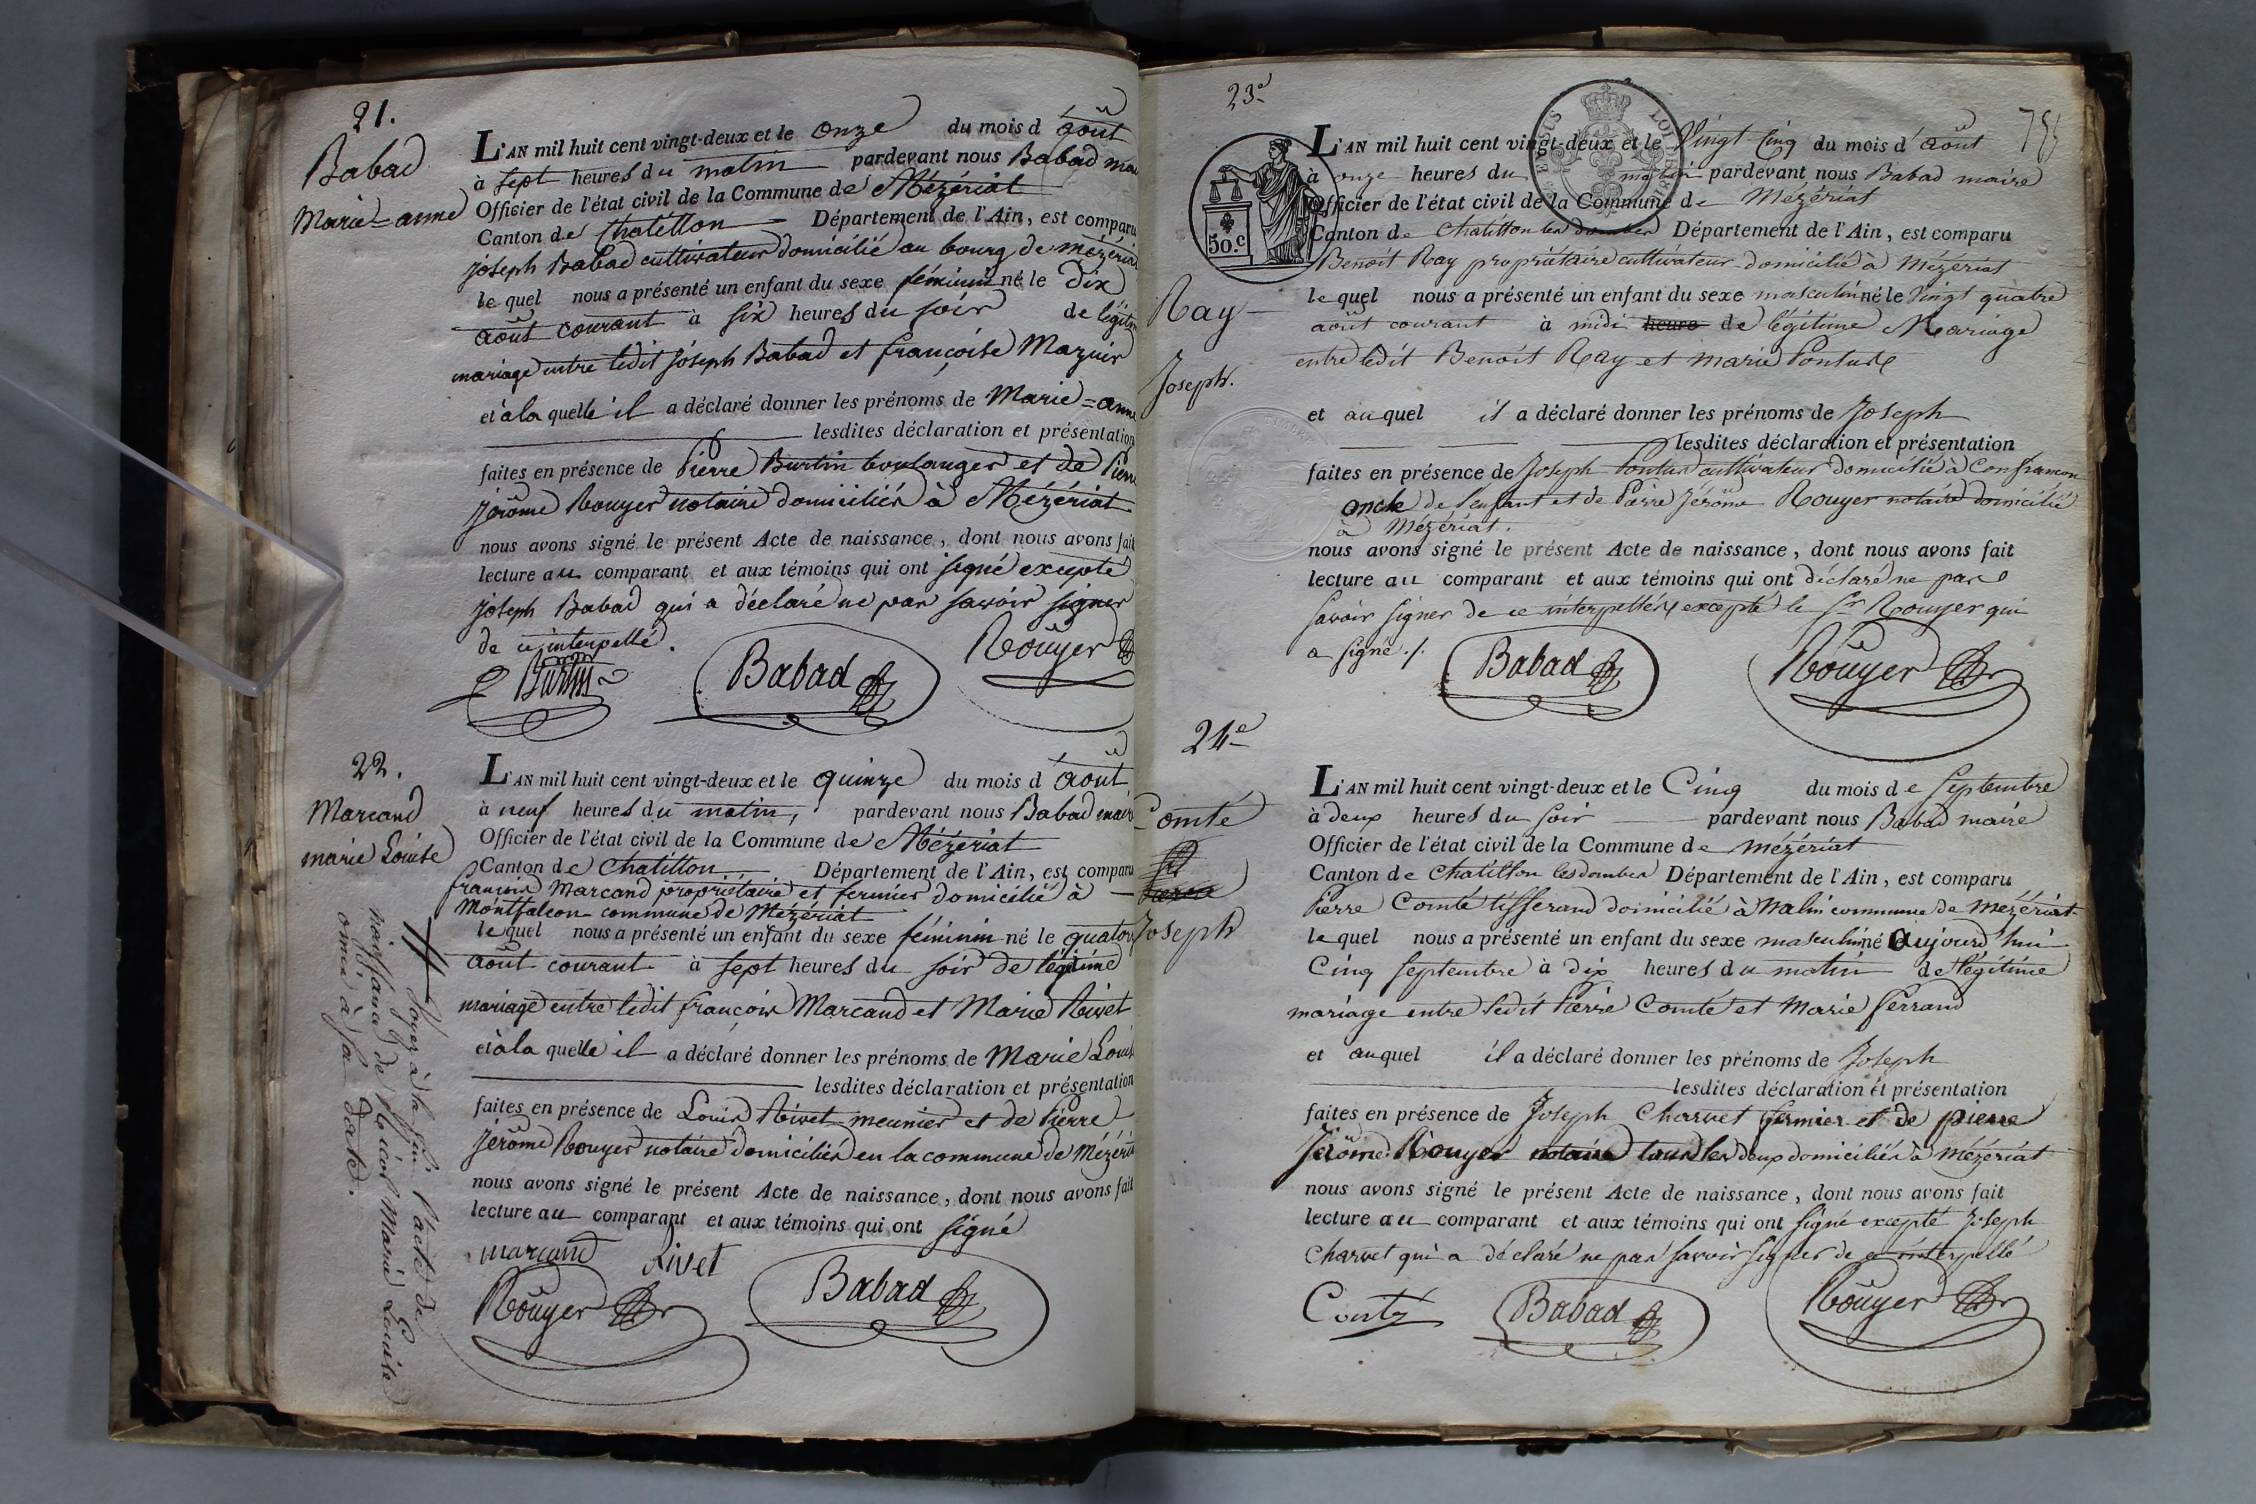 21.
Babad
Marie=anne
L'AN mil huit cent vingt-deux et le onze du mois d'août
à sept heures du matin pardevant nous Babad mai
Officier de l'état civil de la Commune de Mézériat
Canton de Chatillon Département de l'Ain, est comparu
joseph Babad cultivateur domicilié au bourg de mézériat
le quel nous a présenté un enfant du sexe féminin né le Dix
août courant à six heures du soir de légit
mariage entre ledit joseph Babad et françoise Mazuir
et à la quelle il a déclaré donner les prénoms de Marie=anne
lesdites déclaration et présentation
faites en présence de Pierre Burtin boulanger et de Pierre
jérôme Rouyer notaire domiciliés à Mézériat
nous avons signé le présent Acte de naissance, dont nous avons fait
lecture au comparant et aux témoins qui ont signé excepté
joseph Babad qui a déclaré ne pas savoir signer
de ce interpellé.
P Burtin Babad Roüyer
22.
Marcand
marie Louise
L'AN mil huit cent vingt-deux et le quinze du mois d'août
à neuf heures du matin, pardevant nous Babad maire
Officier de l'état civil de la Commune de Mézériat
Canton de Chatillon Département de l'Ain, est comparu
françois Marcand propriétaire et fermier domicilié à
Montfalcon commune de Mézériat
le quel nous a présenté un enfant du sexe féminin né le quatorz
août courant à sept heures du soir de légitime
mariage entre ledit françois Marcand et Marie Rivet
et à la quelle il a déclaré donner les prénoms de Marie Louis
lesdites déclaration et présentation
faites en présence de Louis Rivet meunier et de Pierre
Jérôme Rouyer notaire domiciliés en la commune de Mézéria
nous avons signé le présent Acte de naissance, dont nous avons fait
lecture au comparant et aux témoins qui ont signé
marcand Rivet
Roüyer Babad
Voyez à la fin l'acte de
naissance de Marie Louise
omis à sa date.
23e
755
50.c
L'AN mil huit cent vingt-deux et le Vingt Cinq du mois d'août
à onze heures du matin pardevant nous Babad maire
Officier de l'état civil de la Commune de Mézériat
Canton de Chatillon les dombes Département de l'Ain, est comparu
Benoit Ray propriétaire cultivateur domicilié à Mézériat
Ray
le quel nous a présenté un enfant du sexe masculin né le Vingt quatre
août courant à midi heure de légitime Mariage
entre ledit Benoit Ray et marie Pontus
Joseph.
et au quel il a déclaré donner les prénoms de Joseph
lesdites déclaration et présentation
faites en présence de Joseph Pontus cultivateur domicilié à Confrancon
oncle de l'enfant et de Pierre Jérôme Rouyer notaire domicilié
à Mézériat.
nous avons signé le présent Acte de naissance, dont nous avons fait
lecture au comparant et aux témoins qui ont déclaré ne pas
savoir signer de ce interpellés excepté le Sr Rouyer qui
a signé ./.
Babad Roüyer
24e
Comte
Joseph
L'AN mil huit cent vingt-deux et le Cinq du mois de Septembre
à deux heures du soir pardevant nous Babad maire
Officier de l'état civil de la Commune de Mézériat
Canton de Chatillon les dombes Département de l'Ain, est comparu
Pierre Comte tisserand domicilié à Malin commune de Mézériat
le quel nous a présenté un enfant du sexe masculin né aujourd'hui
Cinq Septembre à dix heures du matin de légitime
mariage entre ledit Pierre Comte et Marie ferrand
et au quel il a déclaré donner les prénoms de Joseph
lesdites déclaration et présentation
faites en présence de Joseph Charvet fermier et de pierre
Jérôme Rouyer notaire tous les deux domiciliés à Mézériat
nous avons signé le présent Acte de naissance, dont nous avons fait
lecture au comparant et aux témoins qui ont signé excepté Joseph
Charvet qui a déclaré ne pas savoir signer de ce interpellé
Babad Roüyer